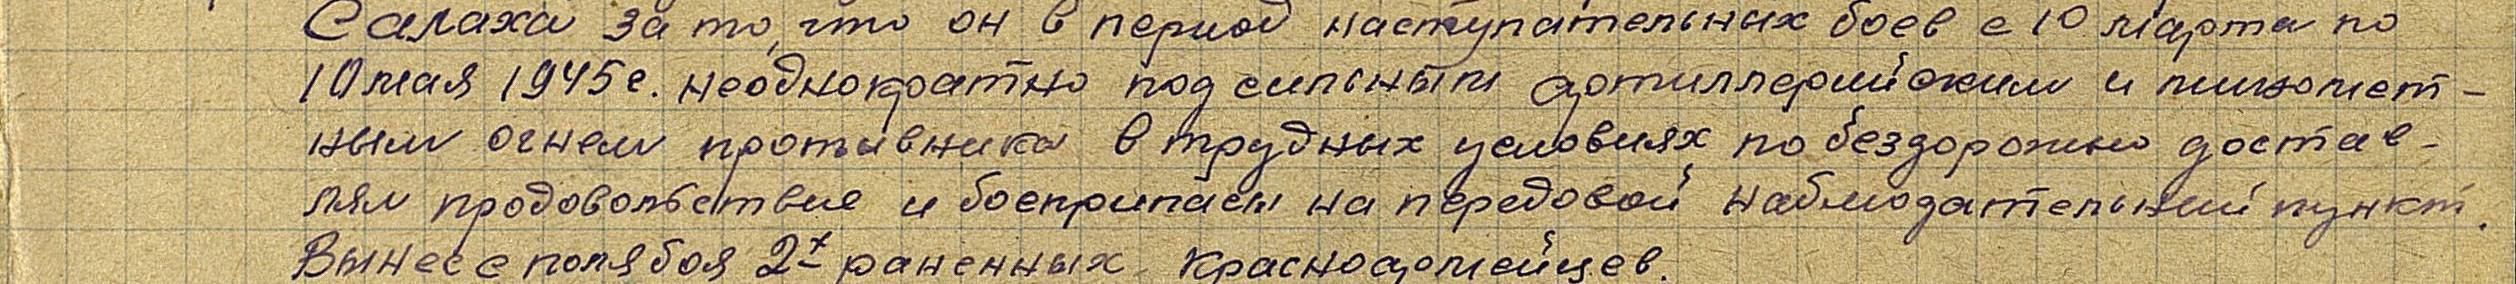 Салаха за то, что он в период наступательных боев с 10 марта по
10 мая 1945 г. неоднократно под сильным артиллерийским и миномет-
ным огнем противника в трудных условиях по бездорожью достав-
лял продовольствие и боеприпасы на передовой наблюдательный пункт.
Вынес с поля боя 2х раненных красноармейцев.